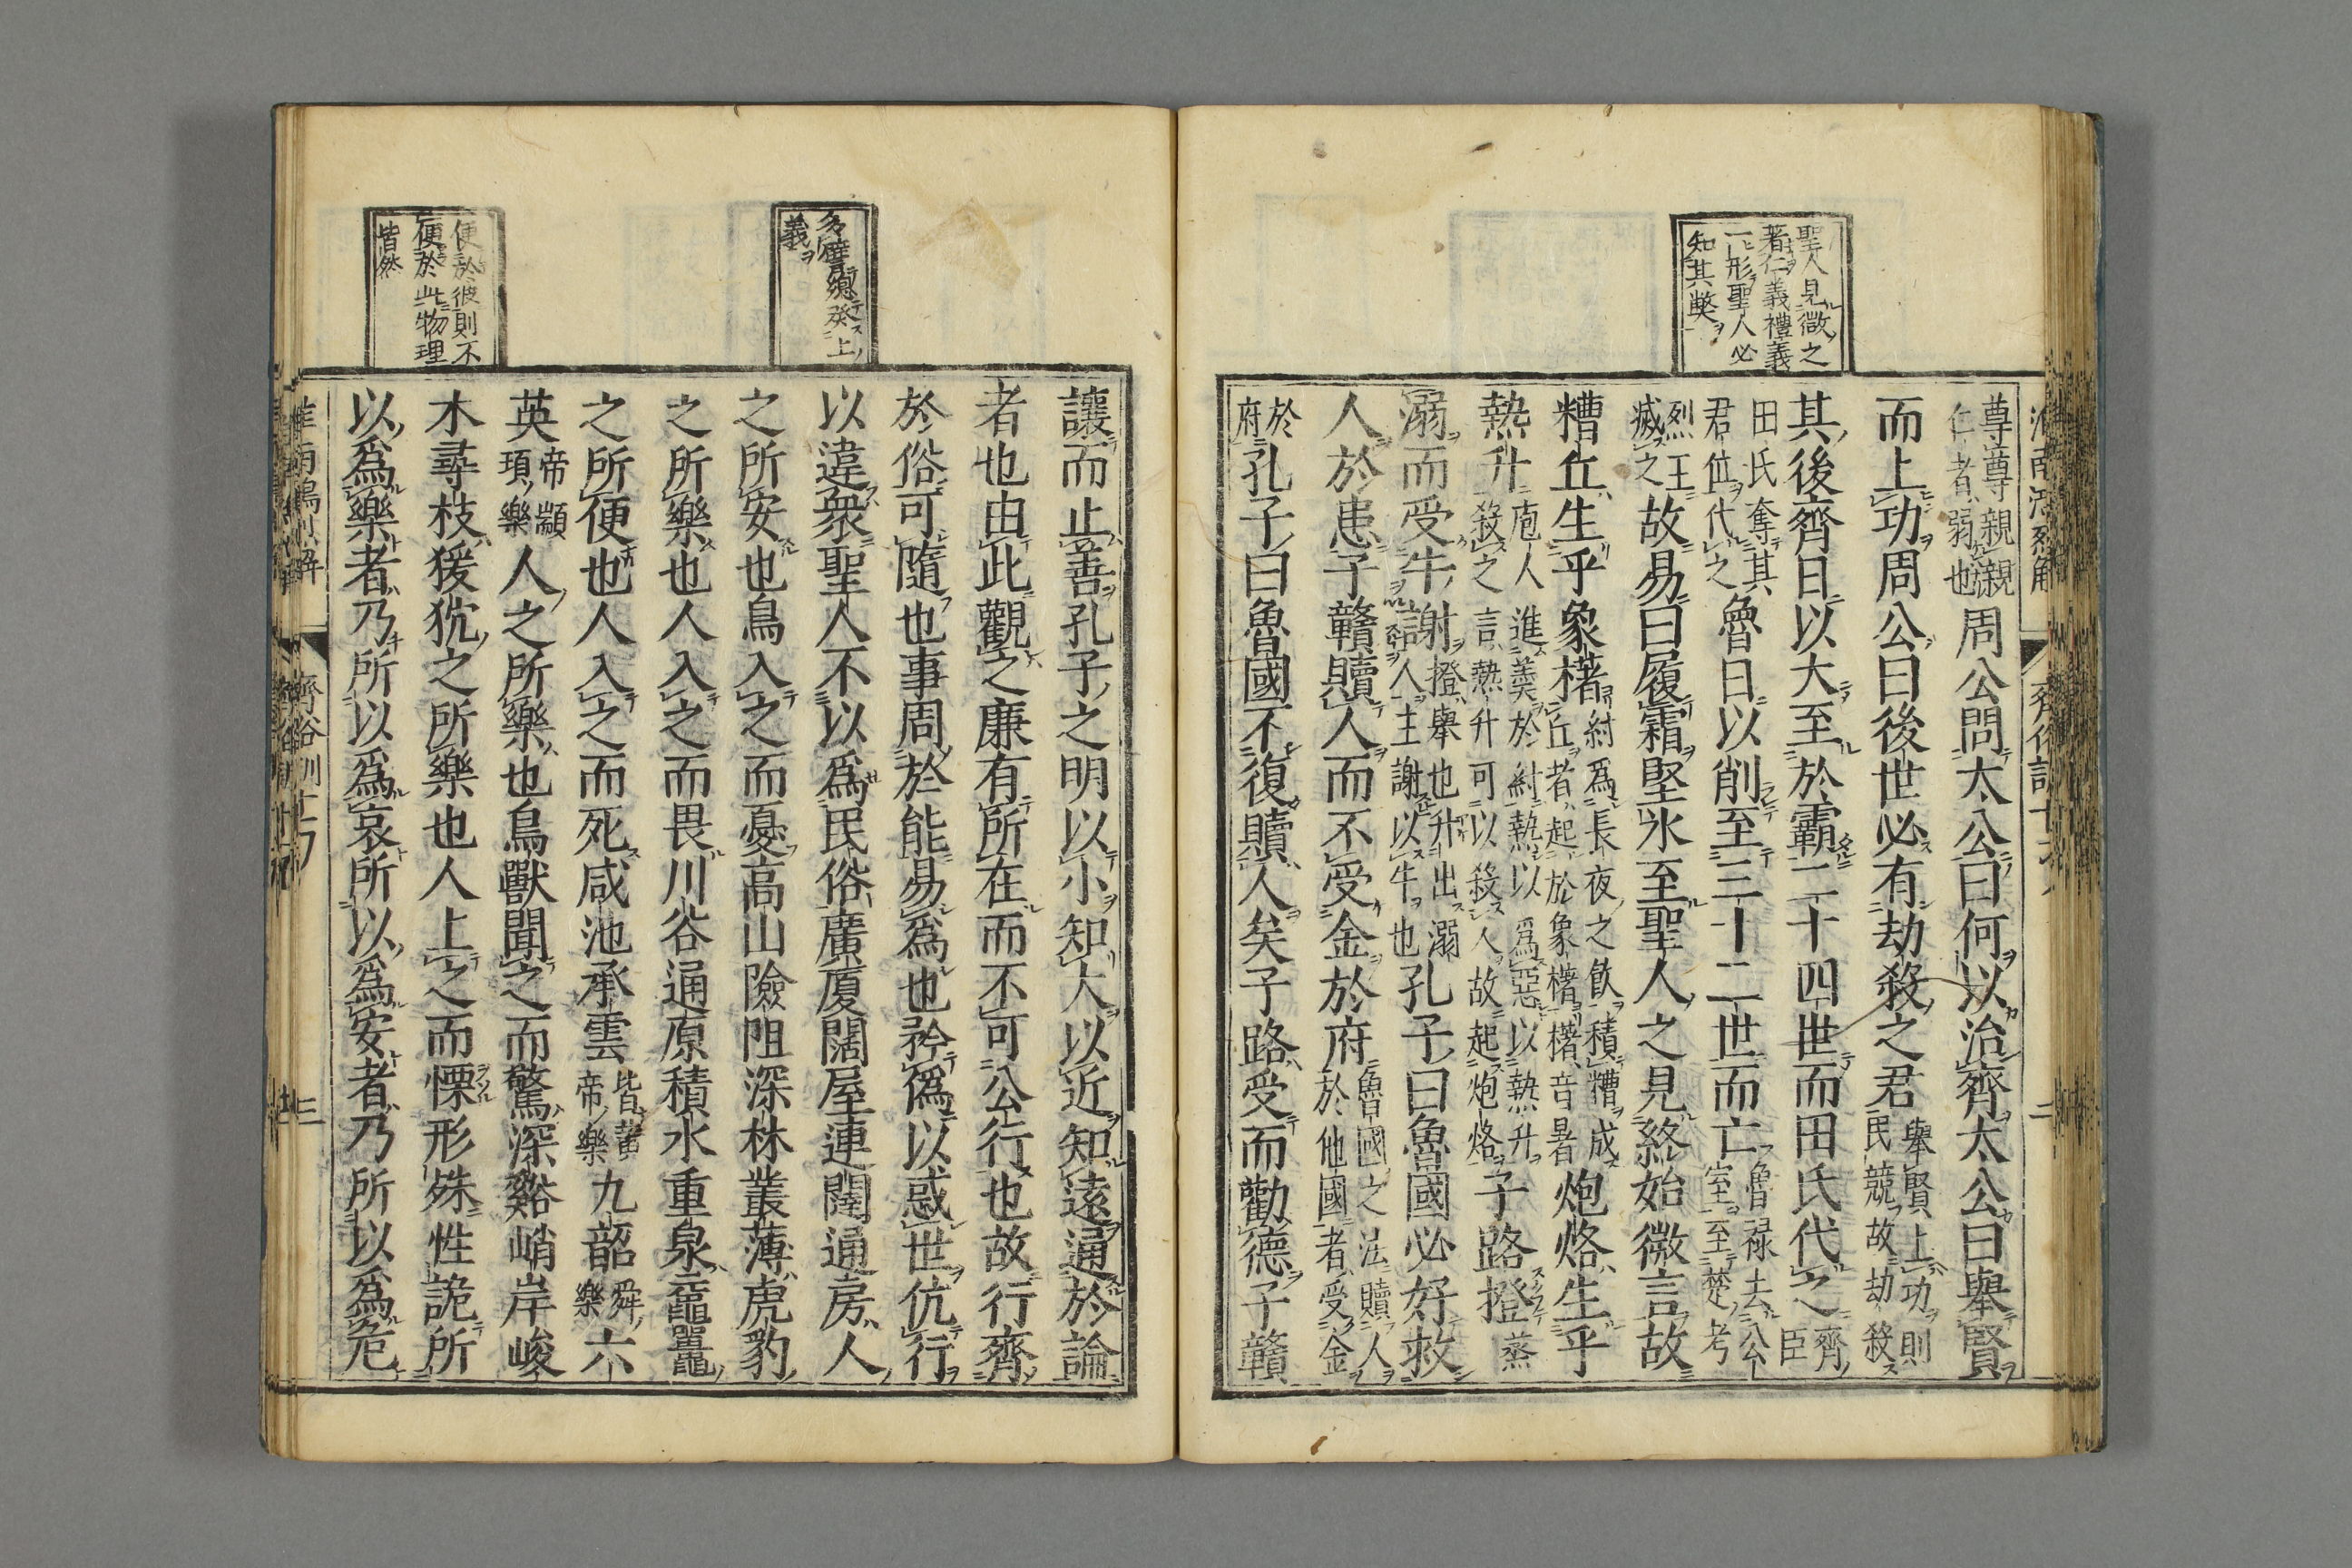 聖人見微之
著仁義禮義
一形聖人必
知其獘
尊尊親親
仁者弱也
周公問太公曰何以治齊太公曰舉賢
而上功周公曰後世必有劫殺之君
舉賢上功則
民競故劫殺
其後齊日以大至於霸二十四世而田氏代之
齊
臣
田氏奪其
君位代之
魯日以削至三十二世而亡
魯祿去公
室至楚考
烈王
滅之
故易曰履霜堅氷至聖人之見終始微言故
糟丘生乎象櫡
紂爲長夜之飲積糟成
丘者起於象櫡櫡音暑
炮烙生乎
熱升
庖人進羮於紂熱以爲惡以熱升
殺之言熱升可以殺人故起炮烙
子路撜
蒸
溺而受牛謝
撜舉也升出溺
人主謝以牛也
孔子曰魯國必好救
人於患子贛贖人而不受金於府
魯國之法贖人
於他國者受金
於
府
孔子曰魯國不復贖人矣子路受而勸德子贛
多譬總發上
義
便於彼則不
便於此物理
皆然
讓而止善孔子之明以小知大以近知遠通於論
者也由此觀之廉有所在而不可公行也故行齊
於俗可隨也事周於能易爲也矜僞以惑世伉行
以違衆聖人不以爲民俗廣厦闊屋連闥通房人
之所安也鳥入之而憂高山險阻深林叢薄虎豹
之所樂也人入之而畏川谷通原積水重泉黿鼉
之所便也人入之而死咸池承雲
皆黃
帝樂
九韶
舜
樂
六
英
帝顓
頊樂
人之所樂也鳥獸聞之而驚深谿峭岸峻
木尋枝猨狖之所樂也人上之而慄形殊性詭所
以爲樂者乃所以爲哀所以爲安者乃所以爲危
淮南鴻烈解
齊俗訓十一
三